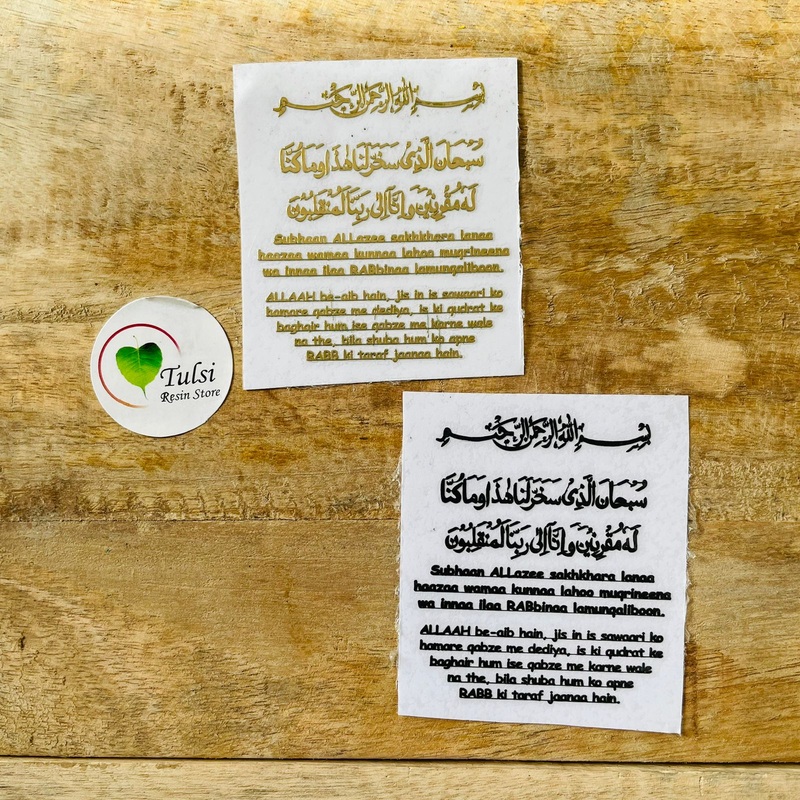 بسم الله الرحمن الرحيم
سبحان الذي سخر لنا هذا وما كنا
له مقرنين وانا الى ربنا لمنقلبون
Subhaan ALLazee sakhkhara lanaa
haazaa wamaa kunnaa lahoo muqrineena
wa innaa ilaa RABbinaa lamunqaliboon.
ALLAAH be-aib hain, jis in is sawaari ko
hamare qabze me dediya, is ki qudrat ke
baghair hum ise qabze me karne wale
na the, bila shuba hum ko apne
RABB ki taraf jaanaa hain.
Tulsi
Resin Store
بسم الله الرحمن الرحيم
سبحان الذي سخر لنا هذا وما كنا
له مقرنين وانا الى ربنا لمنقلبون
Subhaan ALLazee sakhkhara lanaa
haazaa wamaa kunnaa lahoo muqrineena
wa innaa ilaa RABbinaa lamunqaliboon.
ALLAAH be-aib hain, jis in is sawaari ko
hamare qabze me dediya, is ki qudrat ke
baghair hum ise qabze me karne wale
na the, bila shuba hum ko apne
RABB ki taraf jaanaa hain.